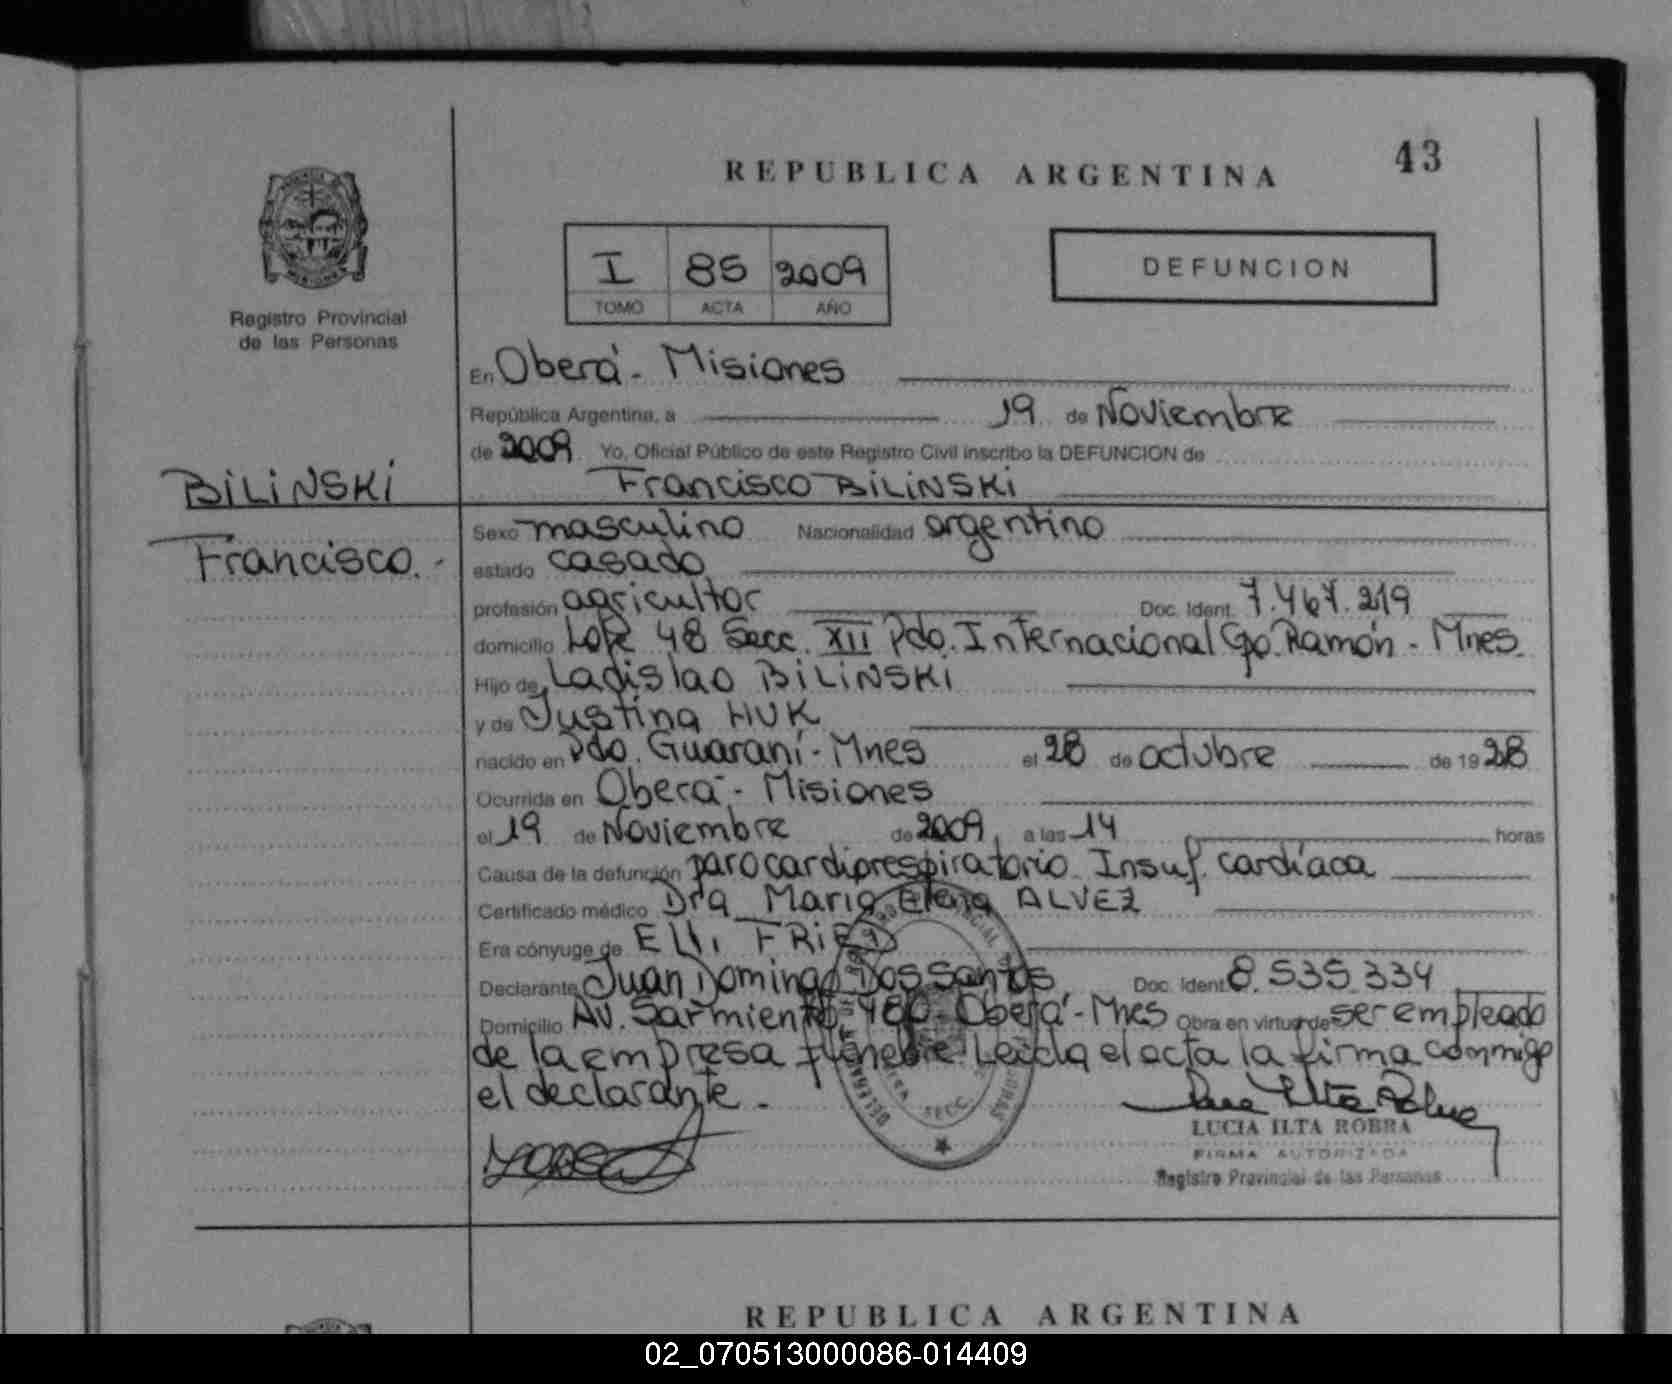 43
REPUBLICA ARGENTINA
I 85 2009
TOMO ACTA AÑO
DEFUNCION
Registro Provincial
de las Personas
En Oberá - Misiones
República Argentina, a 19 de Noviembre
de 2009 Yo, Oficial Público de este Registro Civil inscribo la DEFUNCION de
Francisco BILINSKI
BILINSKI
Francisco.-
Sexo masculino Nacionalidad argentino
estado casado
profesión agricultor Doc. Ident. 7.467.219
domicilio Lote 48 Secc. XII Pdo. Internacional Gpo. Ramón - Mnes.
Hijo de Ladislao BILINSKI
y de Justina HUK
nacido en Pdo. Guaraní - Mnes el 28 de octubre de 1928
Ocurrida en Oberá - Misiones
el 19 de Noviembre de 2009, a las 14 horas
Causa de la defunción paro cardiorespiratorio. Insuf. cardíaca
Certificado médico Dra María Elena ALVEZ
Era cónyuge de Elli FRIED
Declarante Juan Domingo Dos Santos Doc. Ident. 8.535.334
Domicilio Av. Sarmiento 480 - Oberá - Mnes Obra en virtud de ser empleado
de la empresa fúnebre. Leída el acta la firma conmigo
el declarante.-
LUCIA ILTA ROBRA
FIRMA AUTORIZADA
Registro Provincial de las Personas
REPUBLICA ARGENTINA
02_070513000086-014409